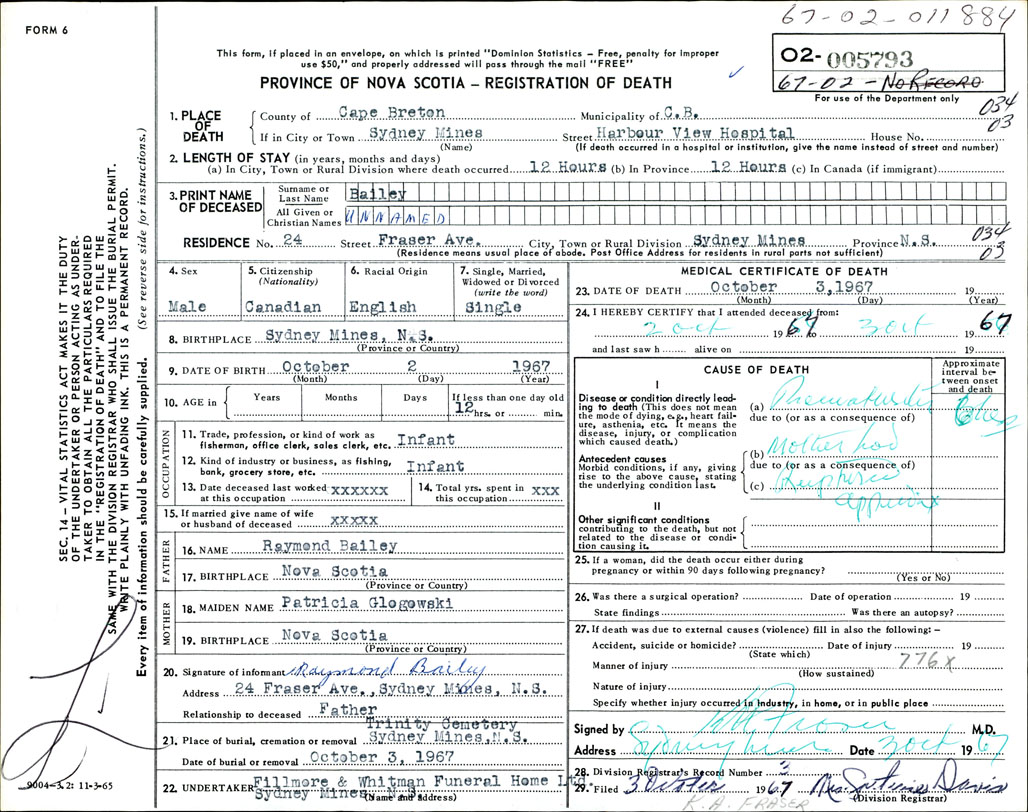 67-02-011884
FORM 6
This form, if placed in an envelope, on which is printed "Dominion Statistics – Free, penalty for improper
use $50," and properly addressed will pass through the mail "FREE"
02- 005793
67-02 - NO RECORD
For use of the Department only
PROVINCE OF NOVA SCOTIA – REGISTRATION OF DEATH
034
03
1. PLACE OF DEATH
County of Cape Breton Municipality of C.B.
If in City or Town Sydney Mines Street Harbour View Hospital House No.
(Name) (If death occurred in a hospital or institution, give the name instead of street and number)
2. LENGTH OF STAY (in years, months and days)
(a) In City, Town or Rural Division where death occurred 12 Hours (b) In Province 12 Hours (c) In Canada (if immigrant)
3. PRINT NAME OF DECEASED
Surname or Last Name Bailey
All Given or Christian Names UNNAMED
RESIDENCE No. 24 Street Fraser Ave. City, Town or Rural Division Sydney Mines Province N.S.
034
03
(Residence means usual place of abode. Post Office Address for residents in rural parts not sufficient)
4. Sex
Male
5. Citizenship
(Nationality)
Canadian
6. Racial Origin
English
7. Single, Married,
Widowed or Divorced
(write the word)
Single
8. BIRTHPLACE Sydney Mines, N.S.
(Province or Country)
9. DATE OF BIRTH October 2 1967
(Month) (Day) (Year)
10. AGE in
Years Months Days If less than one day old
12 hrs. or min.
OCCUPATION
11. Trade, profession, or kind of work as
fisherman, office clerk, sales clerk, etc. Infant
12. Kind of industry or business, as fishing,
bank, grocery store, etc. Infant
13. Date deceased last worked
at this occupation xxxxxx
14. Total yrs. spent in
this occupation xxx
15. If married give name of wife
or husband of deceased xxxxx
FATHER
16. NAME Raymond Bailey
17. BIRTHPLACE Nova Scotia
(Province or Country)
MOTHER
18. MAIDEN NAME Patricia Glogowski
19. BIRTHPLACE Nova Scotia
(Province or Country)
20. Signature of informant Raymond Bailey
Address 24 Fraser Ave., Sydney Mines, N.S.
Relationship to deceased Father
Trinity Cemetery
21. Place of burial, cremation or removal Sydney Mines, N.S.
Date of burial or removal October 3, 1967
22. UNDERTAKER Fillmore & Whitman Funeral Home Ltd.
Sydney Mines N.S.
(Name and Address)
MEDICAL CERTIFICATE OF DEATH
23. DATE OF DEATH October 3,1967 19
(Month) (Day) (Year)
24. I HEREBY CERTIFY that I attended deceased from:
2 Oct 1967 to 3 Oct 1967
and last saw h alive on 19
CAUSE OF DEATH
Approximate
interval be-
tween onset
and death
I
Disease or condition directly lead-
ing to death (This does not mean
the mode of dying, e.g., heart fail-
ure, asthenia, etc. It means the
disease, injury, or complication
which caused death.)
(a) Prematurity
due to (or as a consequence of)
Antecedent causes
Morbid conditions, if any, giving
rise to the above cause, stating
the underlying condition last.
(b) Mother had
due to (or as a consequence of)
(c)
II
Other significant conditions
contributing to the death, but not
related to the disease or condi-
tion causing it.
25. If a woman, did the death occur either during
pregnancy or within 90 days following pregnancy?
(Yes or No)
26. Was there a surgical operation? Date of operation 19
State findings Was there an autopsy?
27. If death was due to external causes (violence) fill in also the following: –
Accident, suicide or homicide? Date of injury 19
(State which)
776x
Manner of injury
(How sustained)
Nature of injury
Specify whether injury occurred in Industry, in home, or in public place
Signed by Fraser M.D.
Address Sydney Mines Date 3 Oct 1967
28. Division Registrar's Record Number 3
29. Filed 3 October 1967 Mrs. Davis
(Division Registrar)
K.A. FRASER
9004-3.2: 11-3-65
SEC. 14 – VITAL STATISTICS ACT MAKES IT THE DUTY
OF THE UNDERTAKER OR PERSON ACTING AS UNDER-
TAKER TO OBTAIN ALL THE PARTICULARS REQUIRED
IN THE "REGISTRATION OF DEATH" AND TO FILE THE
SAME WITH THE DIVISION REGISTRAR WHO SHALL ISSUE THE BURIAL PERMIT.
WRITE PLAINLY WITH UNFADING INK. THIS IS A PERMANENT RECORD.
Every item of information should be carefully supplied. (See reverse side for instructions.)